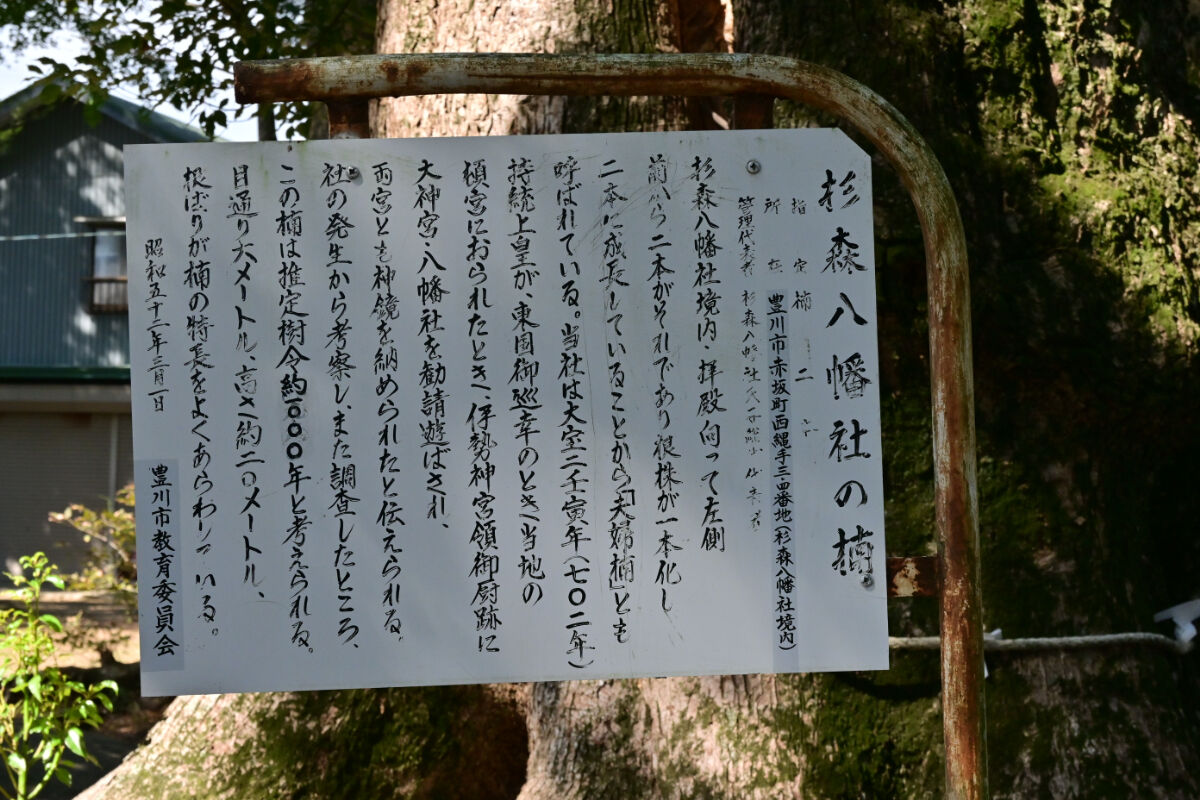 杉森八幡社の楠
指定 楠 二本
所在 豊川市赤坂町西縄手三・四番地(杉森八幡社境内)
管理代表者 杉森八幡社氏子総代
杉森八幡社境内・拝殿向って左側
前から二本がそれであり根株が一本化し
二本に成長していることから「夫婦楠」とも
呼ばれている。当社は大宝二壬寅年(七〇二年)
持統上皇が、東国御巡幸のとき当地の
頓宮におられたとき、伊勢神宮領御厨跡に
大神宮・八幡社を勧請遊ばされ、
両宮とも神鏡を納められたと伝えられる。
社の発生から考察し、また調査したところ、
この楠は推定樹令約一〇〇〇年と考えられる。
目通り六メートル、高さ約二〇メートル、
根ばりが楠の特長をよくあらわしている。
昭和五十二年三月一日
豊川市教育委員会